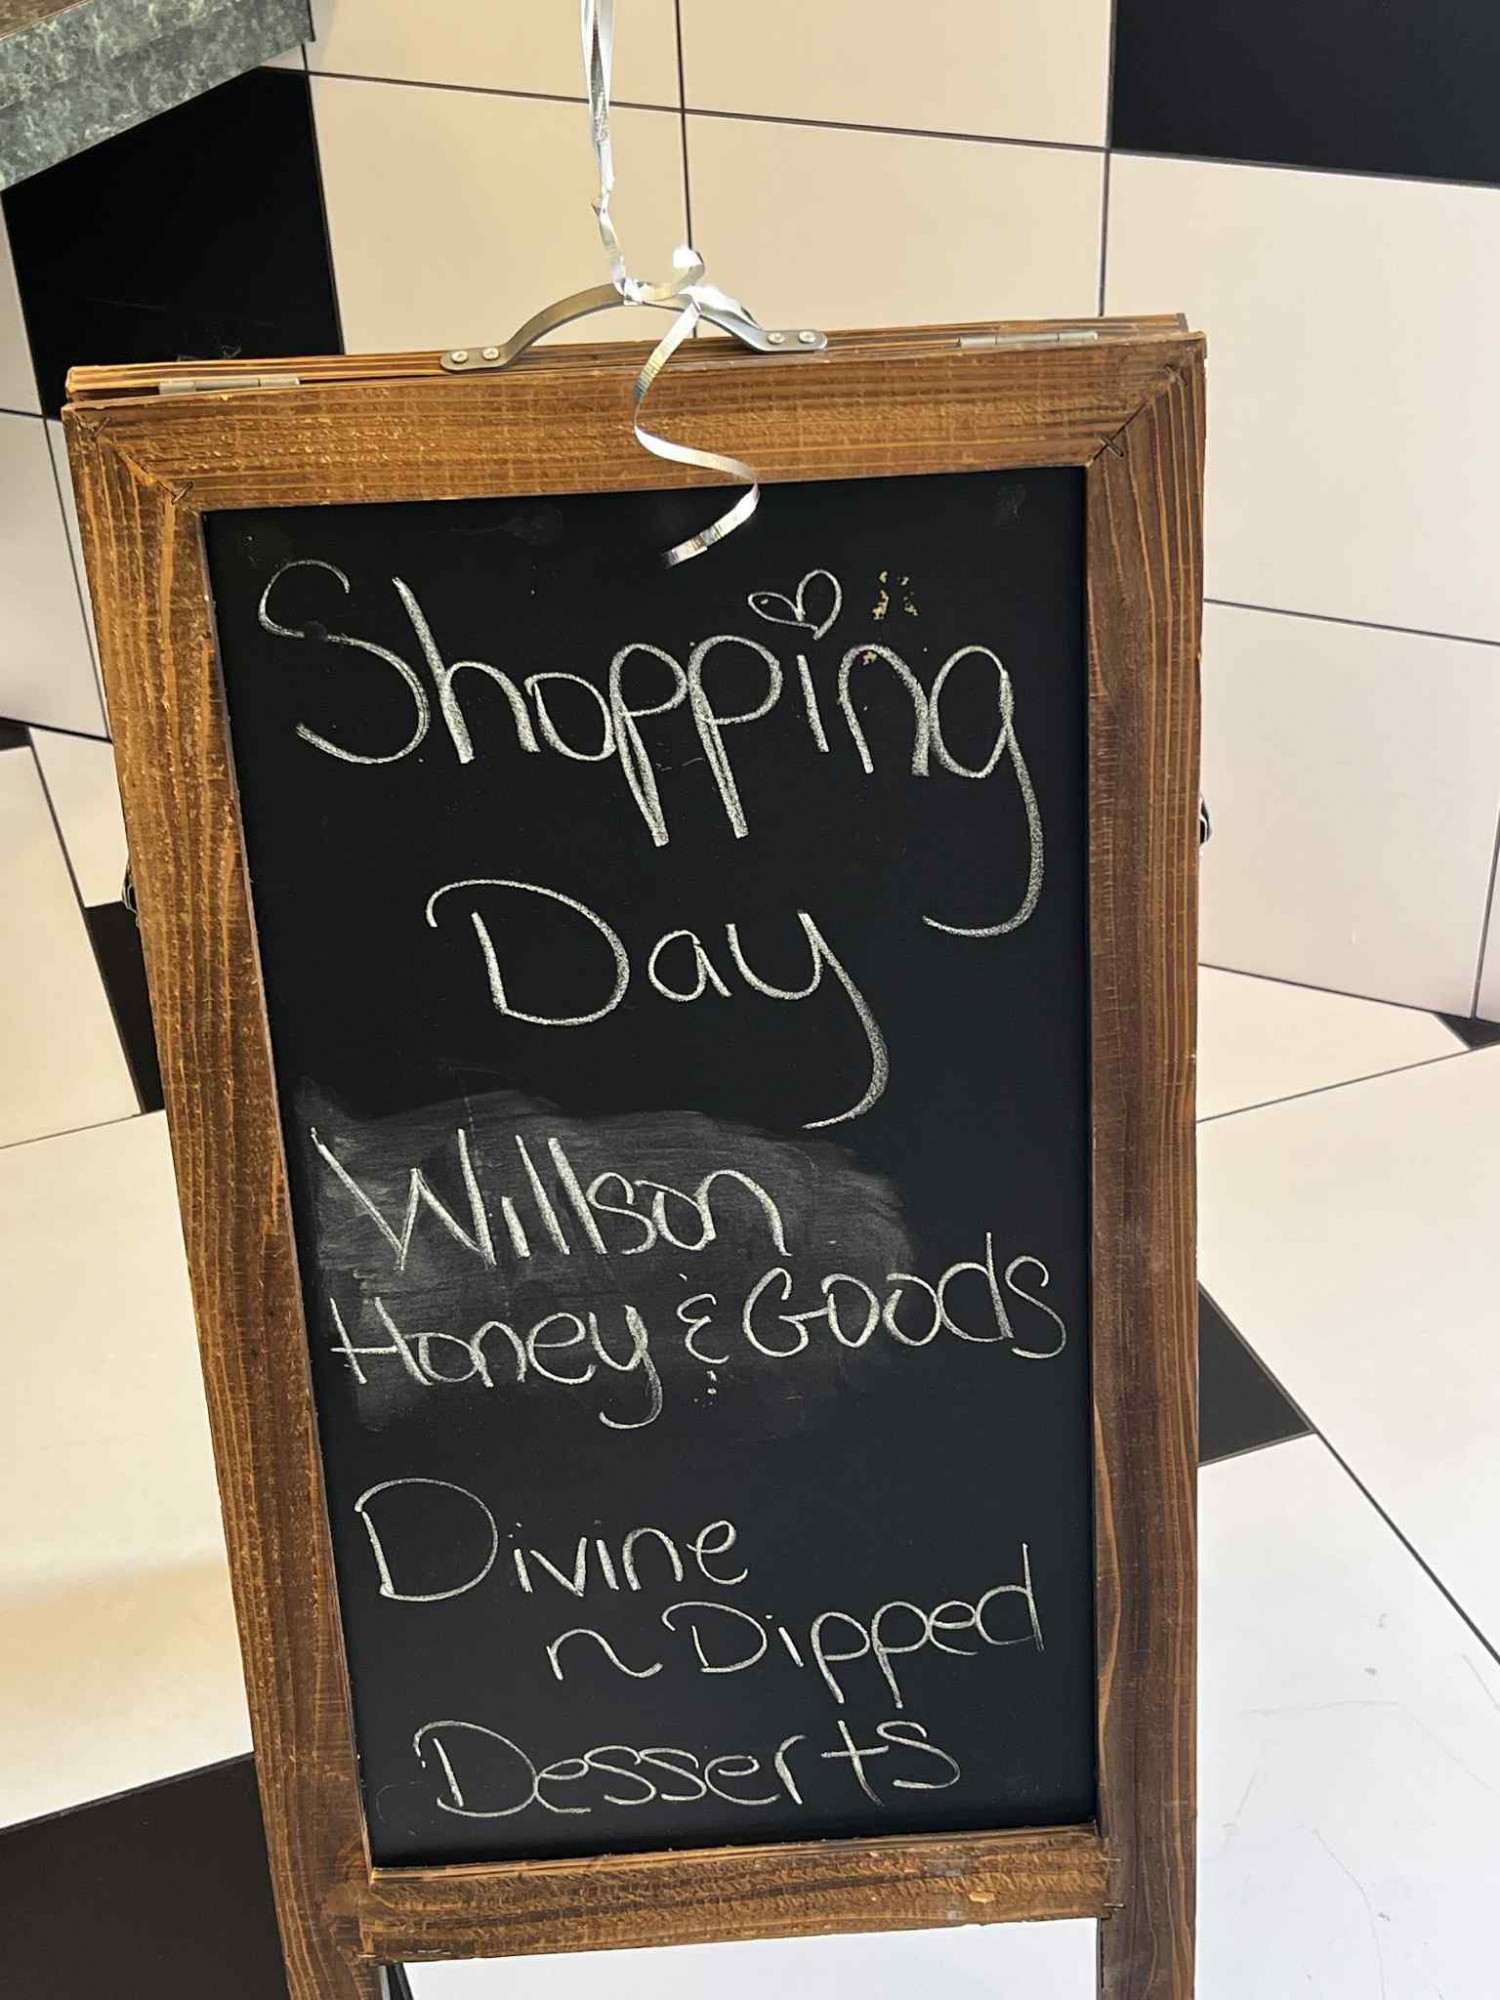 Shopping
Day
Willson
Honey & Goods
Divine
n Dipped
Desserts